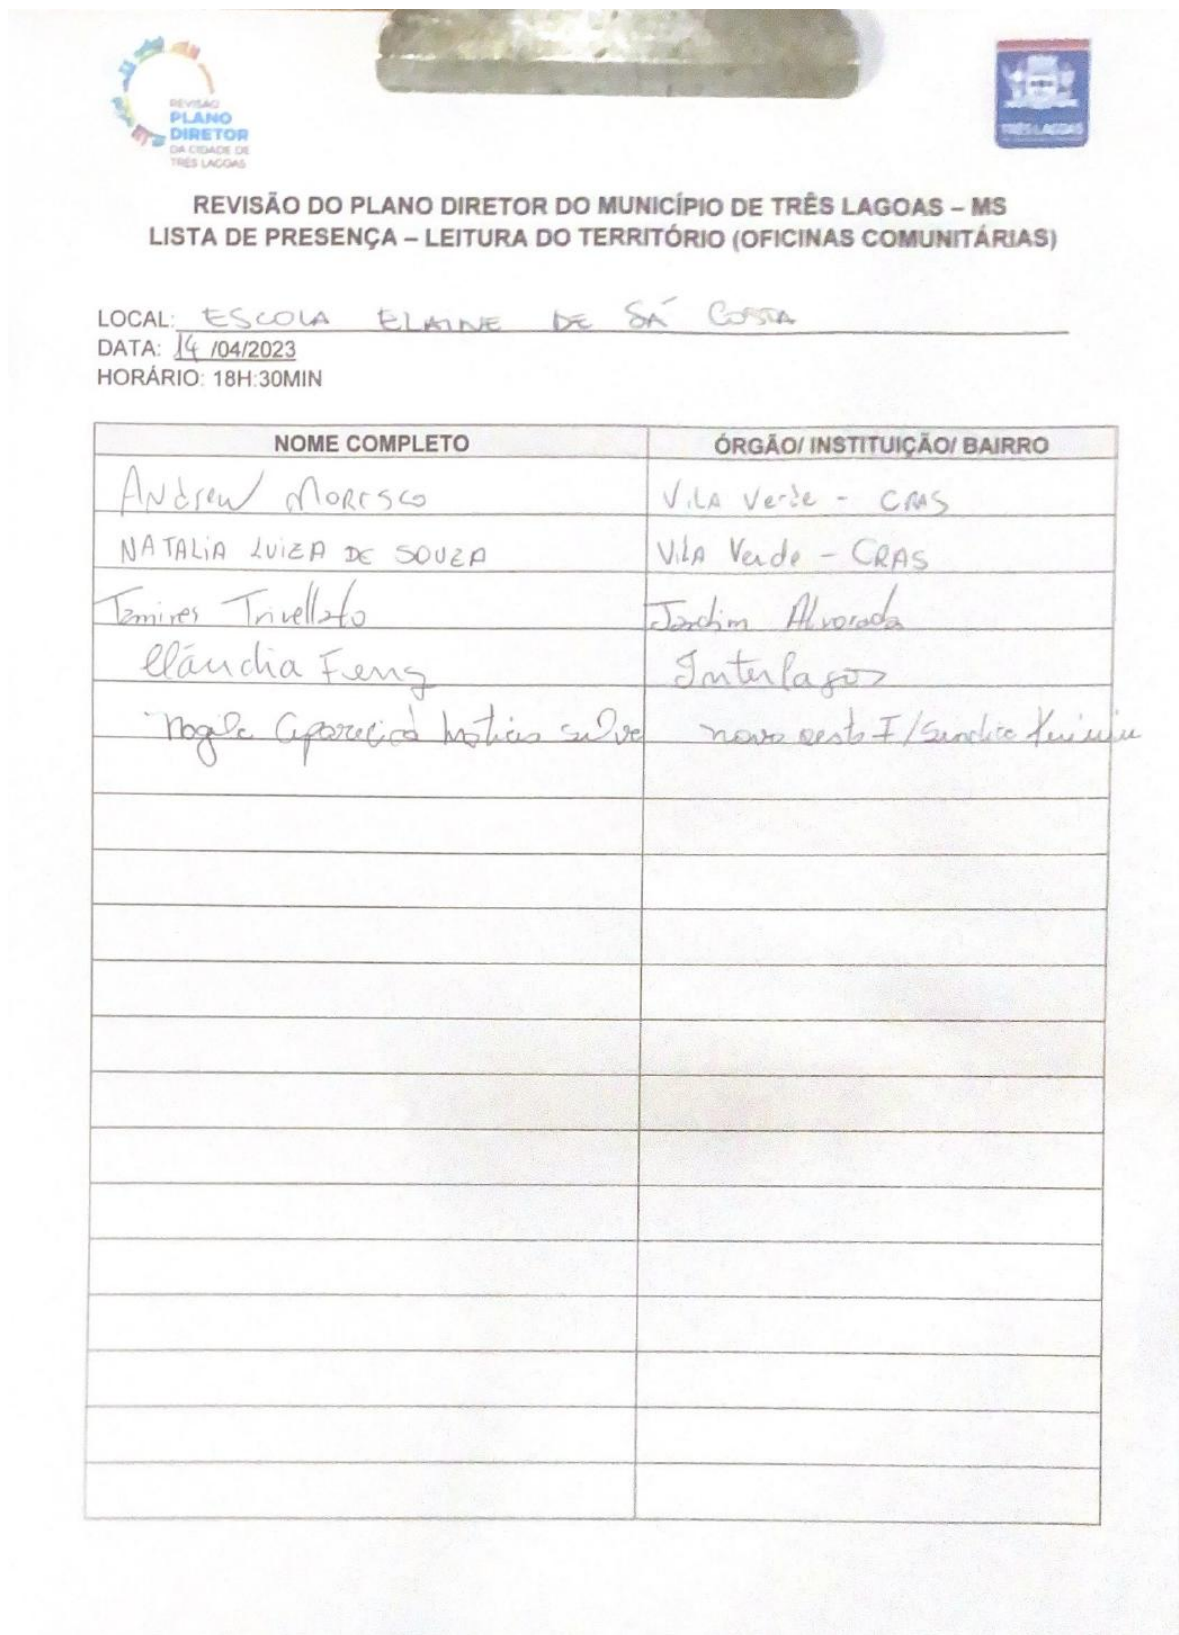 REVISÃO
PLANO
DIRETOR
DA CIDADE DE
TRÊS LAGOAS
TRÊS LAGOAS
REVISÃO DO PLANO DIRETOR DO MUNICÍPIO DE TRÊS LAGOAS – MS
LISTA DE PRESENÇA – LEITURA DO TERRITÓRIO (OFICINAS COMUNITÁRIAS)
LOCAL: ESCOLA ELAINE DE SÁ COSTA
DATA: 14 /04/2023
HORÁRIO: 18H:30MIN
NOME COMPLETO ÓRGÃO/ INSTITUIÇÃO/ BAIRRO
Andrew Moresco Vila Verde - CRAS
NATALIA LUIZA DE SOUZA Vila Verde - CRAS
Tamires Trivellato Jardim Alvorada
Cláudia Feng Interlagos
Aparecida Silva novo oeste I/Sindica